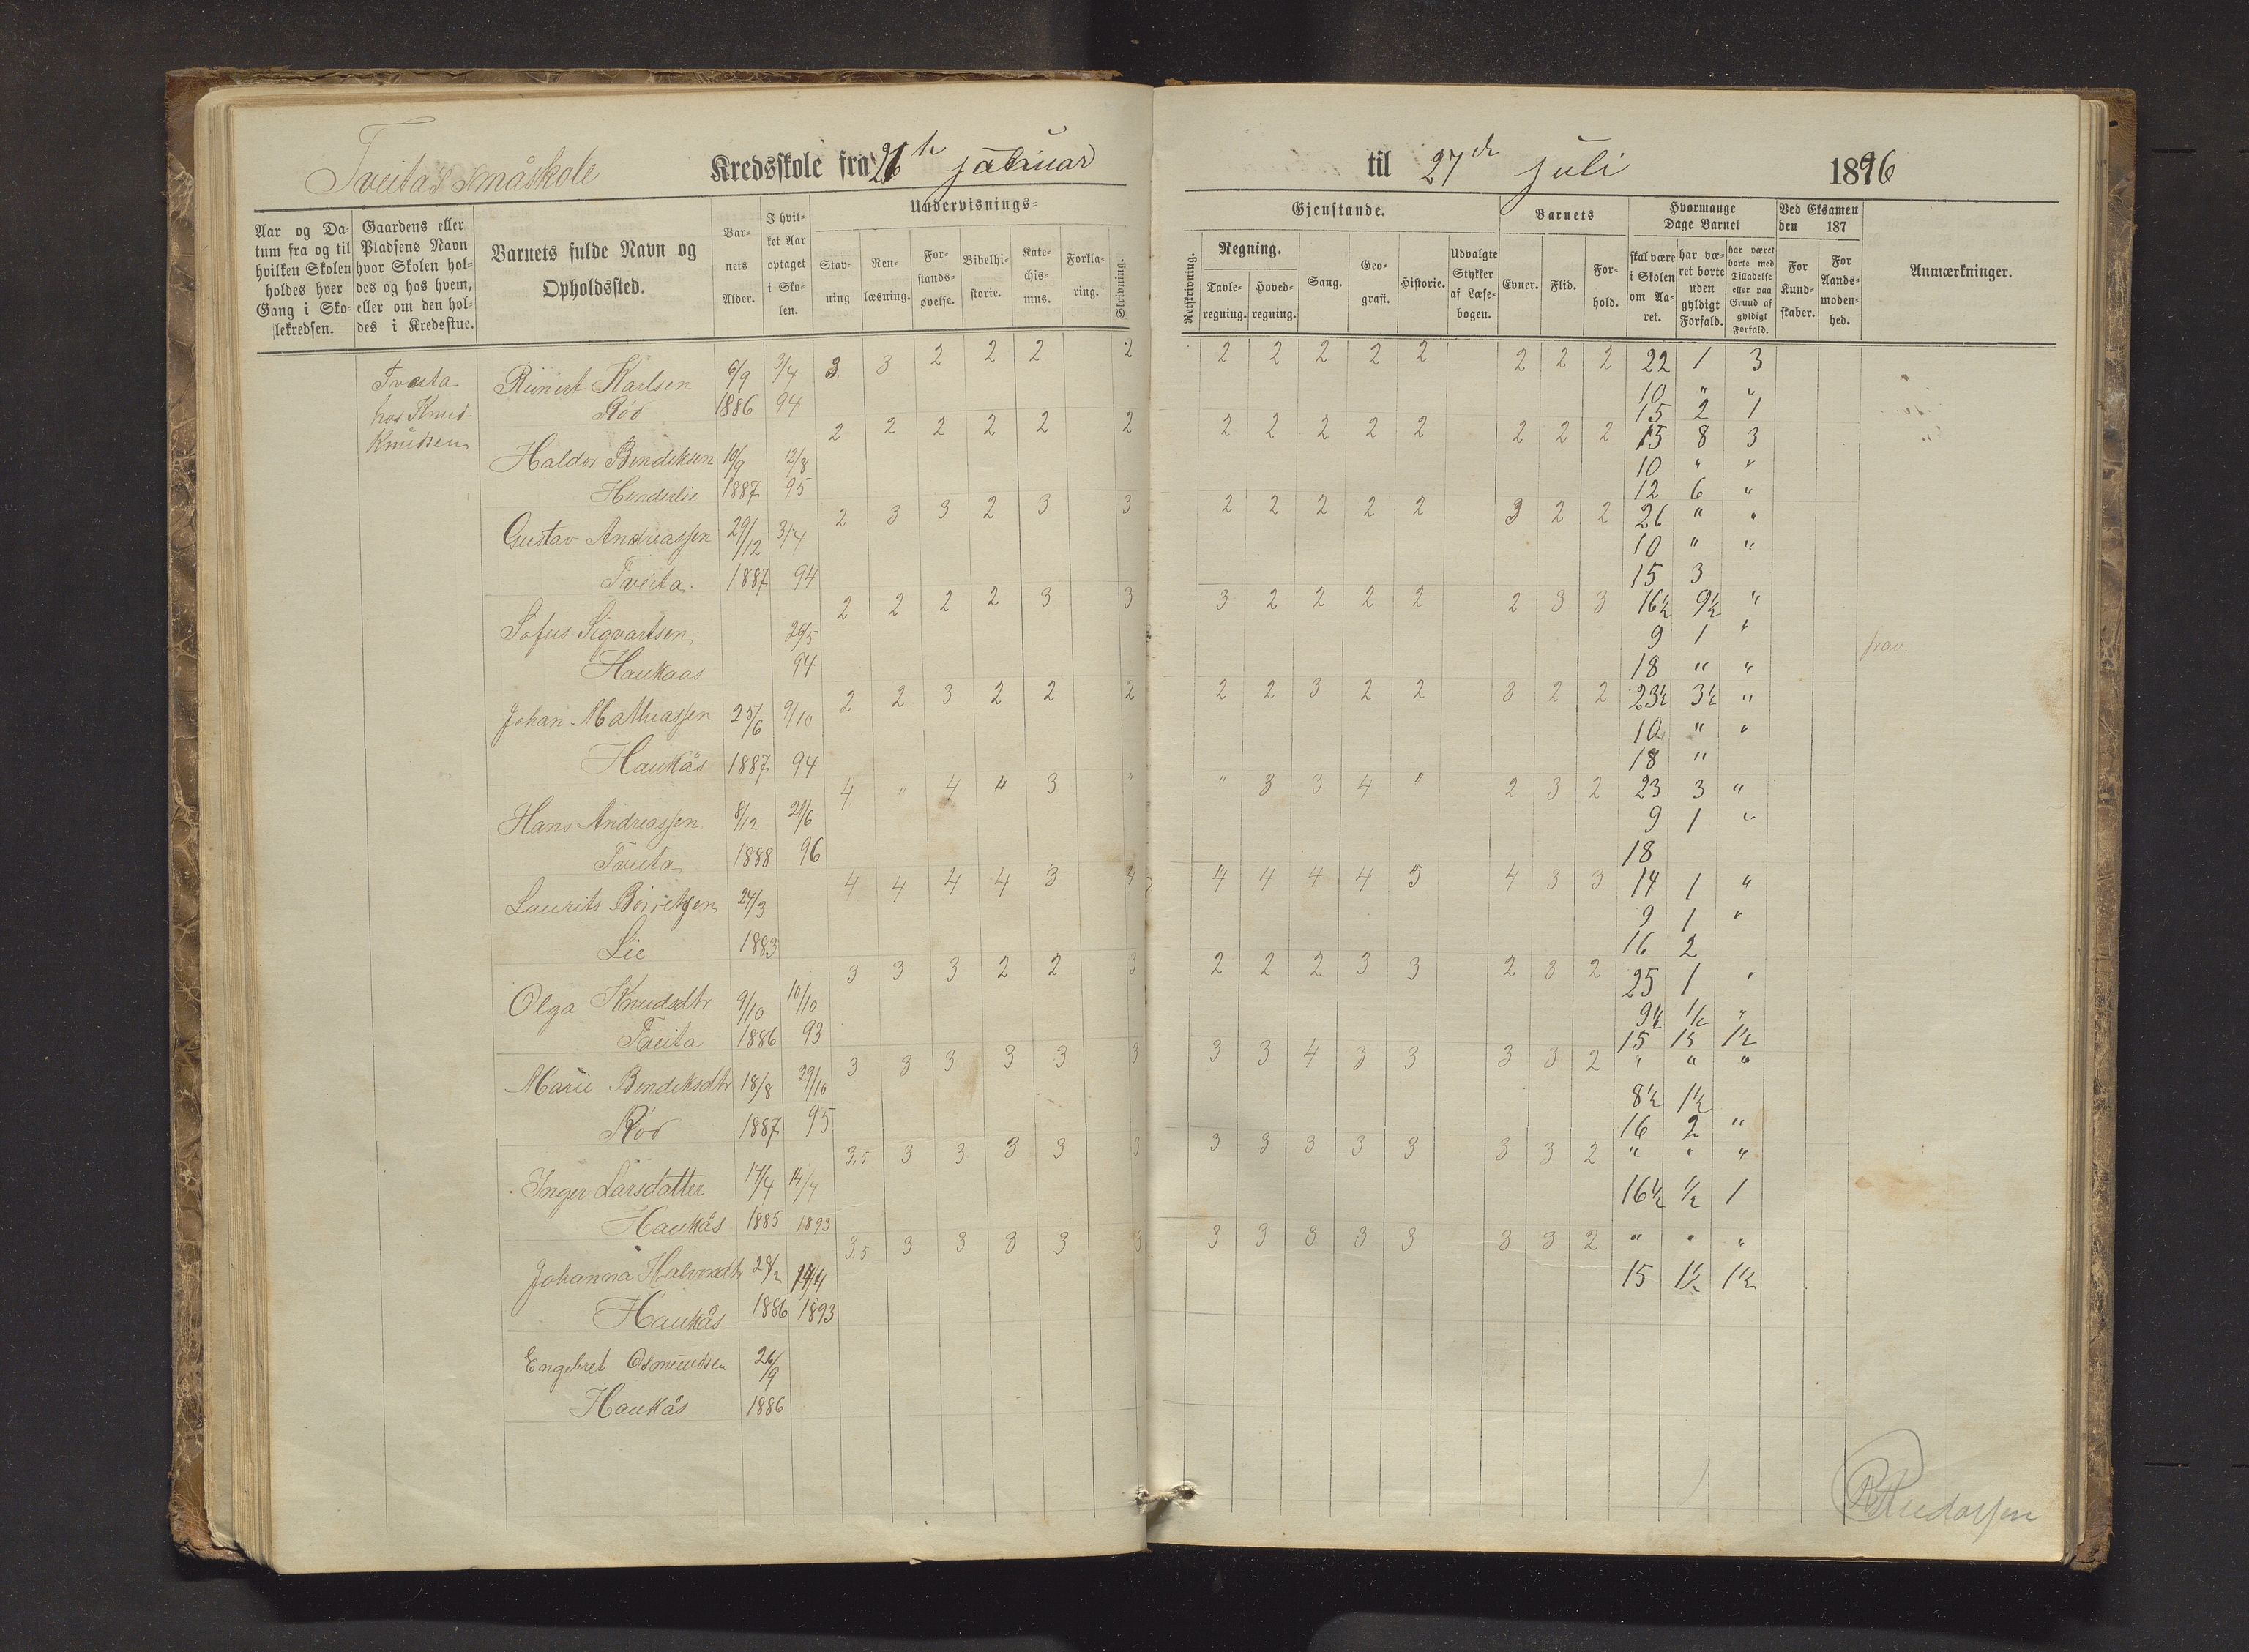 Tveitas småskole Kredsskole fra 21de januar til 27de juli 1896
Aar og Da-
tum fra og til
hvilken Skolen
holdes hver
Gang i Sko-
lekredsen.
Gaardens eller
Pladsens Navn
hvor Skolen hol-
des og hos hvem,
eller om den hol-
des i Kredsstue.
Barnets fulde Navn og
Opholdssted.
Bar-
nets
Alder.
I hvil-
ket Aar
optaget
i Sko-
len.
Undervisnings-
Stav-
ning
Ren-
læsning.
For-
stands-
øvelse.
Bibelhi-
storie.
Kate-
chis-
mus.
Forkla-
ring.
Skrivning.
Gjenstande.
Retskrivning.
Regning.
Tavle-
regning.
Hoved-
regning.
Sang.
Geo-
grafi.
Historie.
Udvalgte
Stykker
af Læse-
bogen.
Barnets
Evner.
Flid.
For-
hold.
Hvormange
Dage Barnet
skal være
i Skolen
om Aa-
ret.
har væ-
ret borte
uden
gyldigt
Forfald.
har været
borte med
Tilladelse
eller paa
Grund af
gyldigt
Forfald.
Ved Eksamen
den 187
For
Kund-
skaber.
For
Aands-
moden-
hed.
Anmærkninger.
Tveita Reinert Karlsen 6/9 3/4 3 3 2 2 2 2 2 2 2 2 2 2 2 2 22 1 3
hos Knud- Rød 1886 94 10 " "
Knudsen 15 2 1
Haldor Bendiksen 10/9 12/8 2 2 2 2 2 2 2 2 2 2 2 2 2 2 15 8 3
Henderlie 1887 95 10 " "
12 6 "
Gustav Andreassen 29/12 3/4 2 3 3 2 3 3 2 2 2 2 2 3 2 2 26 " "
Tveita. 1887 94 10 " "
15 3
Sofus Sigvartsen 26/5 2 2 2 2 3 3 3 2 2 2 2 2 3 3 16½ 9½ "
Haukaas 94 9 1 " frav.
18 " "
Johan Mathiassen 25/6 9/10 2 2 3 2 2 2 2 2 3 2 2 3 2 2 23½ 3½ "
Haukås 1887 94 10 " "
18 "
Hans Andreassen 8/12 21/6 4 " 4 " 3 " " 3 3 4 " 2 3 2 23 3 "
Tveita 1888 96 9 1 "
18
Laurits 24/3 4 4 4 4 3 4 4 4 4 4 5 4 3 3 14 1 "
Lie 1883 9 1 "
16 2
Olga Knudsdtr 9/10 10/10 3 3 3 2 2 3 2 2 2 3 3 2 3 2 25 1 "
Tveita 1886 93 9½ 1½ "
15 1½ 1½
Marie Bendiksdtr 18/8 29/10 3 3 3 3 3 3 3 3 4 3 3 3 3 2 " " "
Rød 1887 95 8½ 1½
16 2 "
Inger Larsdatter 17/4 14/4 3.5 3 3 3 3 3 3 3 3 3 3 3 3 2 " " "
Haukås 1885 1893 16½ ½ 1
Johanna Halvorsdtr 28/2 14/4 3.5 3 3 3 3 3 3 3 3 3 3 3 3 2 " " "
Haukås 1886 1893 15 1½ 1½
Engebret Osmundsen 26/9
Haukås 1886